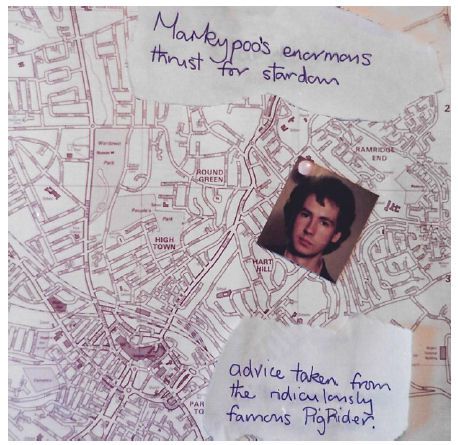 Markypoo's enormous
thrust for stardom
2
Wardown
Park
RAMRIDGE
END
ROUND
GREEN
People's
Park
HIGH
TOWN
HART
HILL
3
advice taken from
the ridiculously
famous PigRider.
PAR
TO